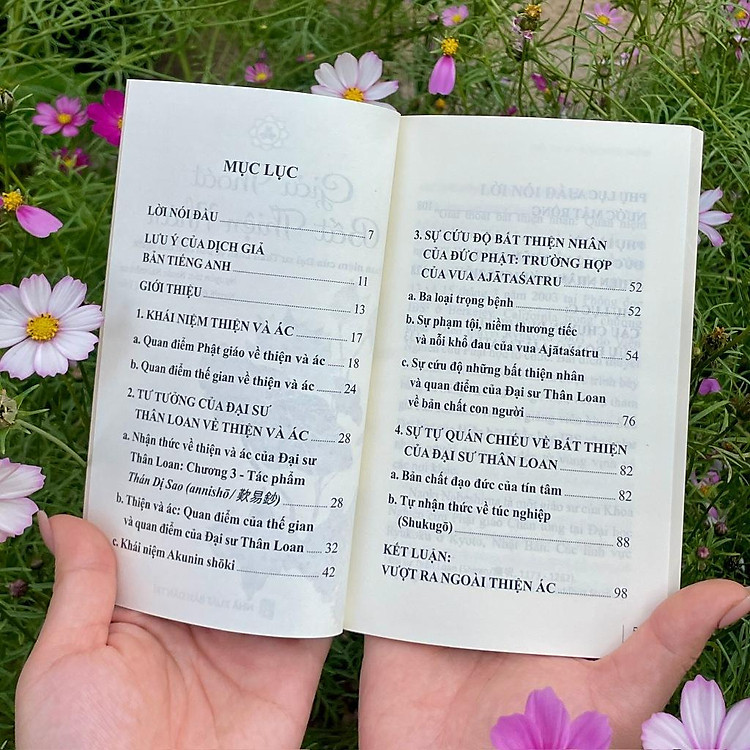 MỤC LỤC
LỜI NÓI ĐẦU 7
LƯU Ý CỦA DỊCH GIẢ
BẢN TIẾNG ANH 11
GIỚI THIỆU 13
1. KHÁI NIỆM THIỆN VÀ ÁC 17
a. Quan điểm Phật giáo về thiện và ác 18
b. Quan điểm thế gian về thiện và ác 24
2. TƯ TƯỞNG CỦA ĐẠI SƯ
THÂN LOAN VỀ THIỆN VÀ ÁC 28
a. Nhận thức về thiện và ác của Đại sư
Thân Loan: Chương 3 - Tác phẩm
Thán Dị Sao (annishō/ 歎易鈔) 28
b. Thiện và ác: Quan điểm của thế gian
và quan điểm của Đại sư Thân Loan 32
c. Khái niệm Akunin shōki 42
3. SỰ CỨU ĐỘ BẤT THIỆN NHÂN
CỦA ĐỨC PHẬT: TRƯỜNG HỢP
CỦA VUA AJĀTAŚATRU 52
a. Ba loại trọng bệnh 52
b. Sự phạm tội, niềm thương tiếc
và nỗi khổ đau của vua Ajātaśatru 54
c. Sự cứu độ những bất thiện nhân
và quan điểm của Đại sư Thân Loan
về bản chất con người 76
4. SỰ TỰ QUÁN CHIẾU VỀ BẤT THIỆN
CỦA ĐẠI SƯ THÂN LOAN 82
a. Bản chất đạo đức của tín tâm 82
b. Tự nhận thức về túc nghiệp
(Shukugō) 88
KẾT LUẬN:
VƯỢT RA NGOÀI THIỆN ÁC 98
5